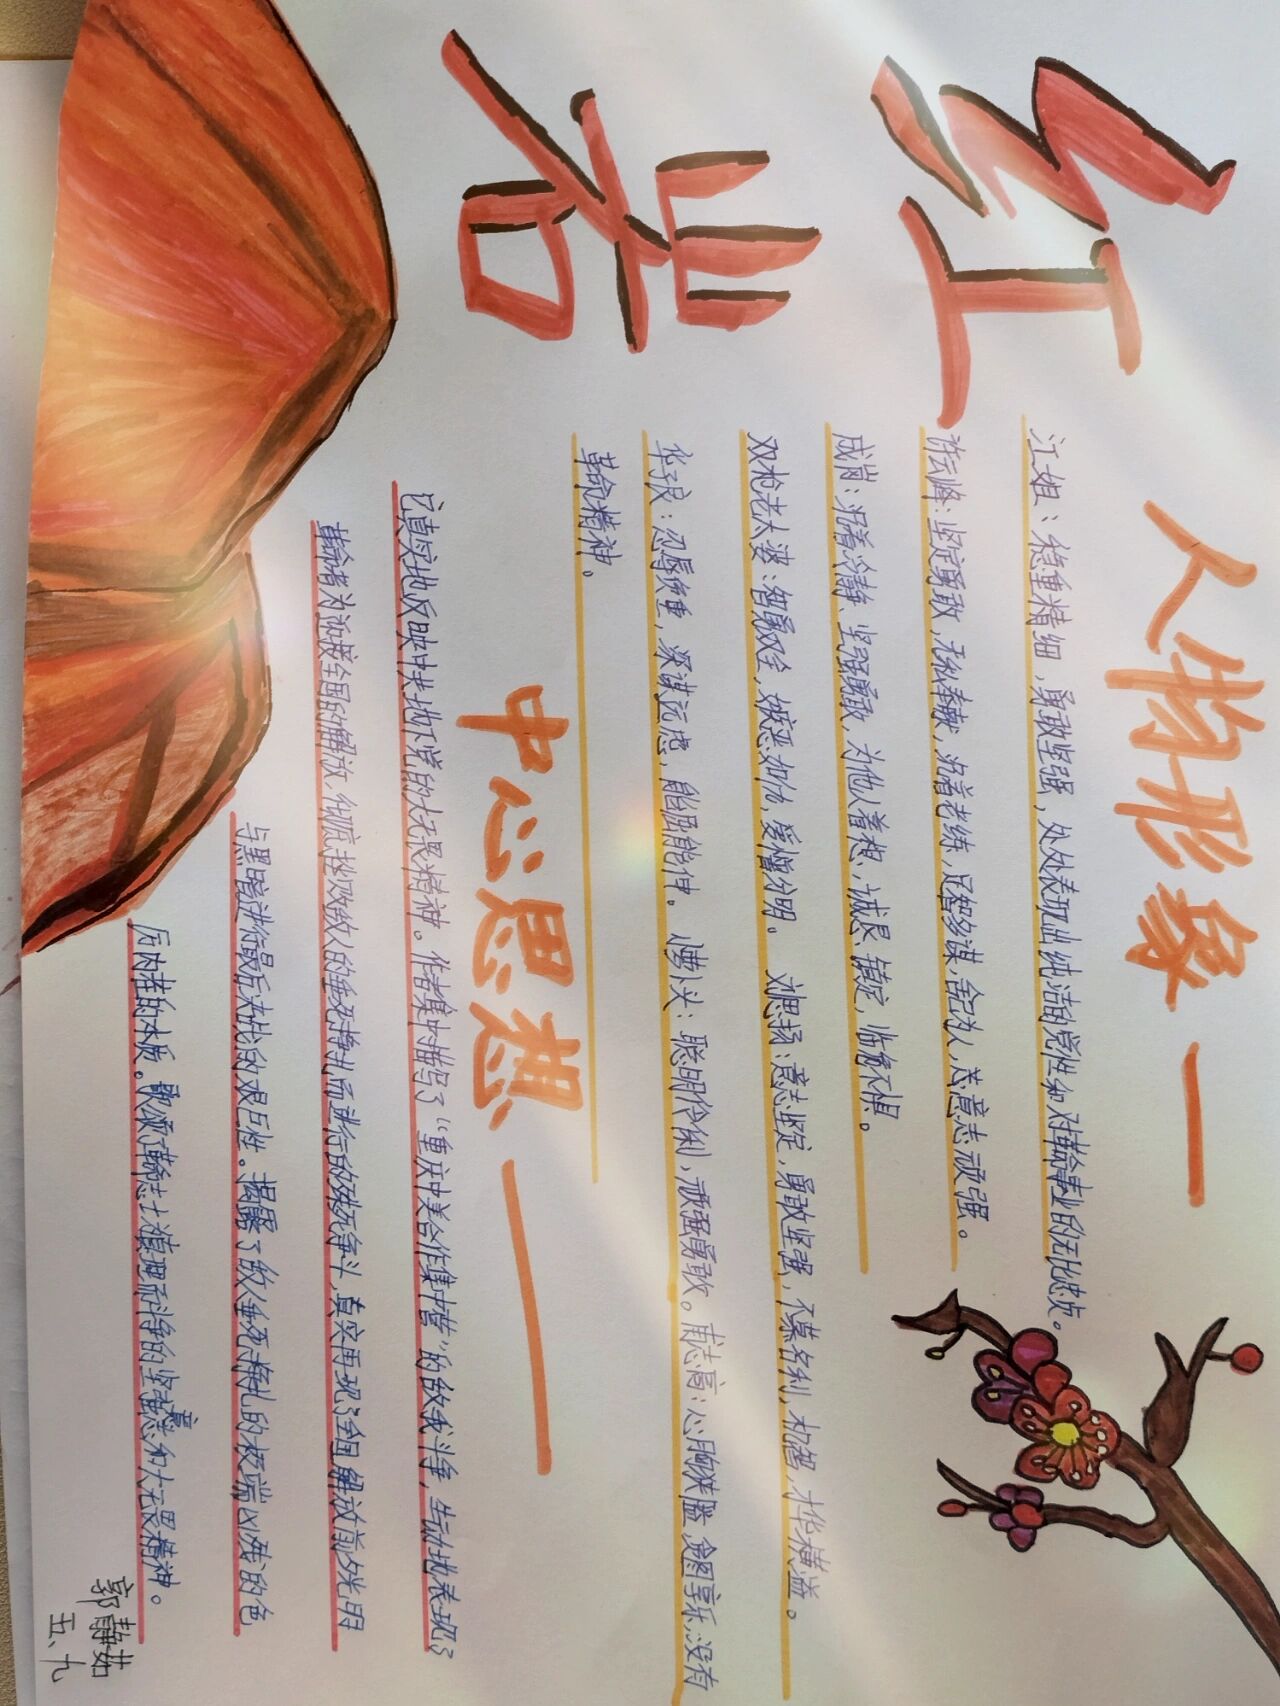 红岩
人物形象
江姐：稳重精细，勇敢坚强，处处表现出纯洁的党性和对革命事业的无比忠贞。
许云峰：坚定勇敢，无私奉献，沉着老练，足智多谋，舍己为人，革命意志顽强。
成岗：沉着冷静，坚强勇敢，为他人着想，诚恳、镇定，临危不惧。
双枪老太婆：智勇双全，嫉恶如仇，爱憎分明。 刘思扬：意志坚定，勇敢坚强，不慕名利，机智，才华横溢。
华子良：忍辱负重，深谋远虑，能屈能伸。 小萝卜头：聪明伶俐，顽强勇敢。甫志高：心胸狭隘，贪图享乐，没有
革命精神。
中心思想
它真实地反映中共地下党的大无畏精神。作者集中描写了“重庆中美合作集中营”的敌我斗争，生动地表现了
革命者为迎接全国的解放，彻底挫败敌人的垂死挣扎而进行的殊死争斗，真实再现了全国解放前夕光明
与黑暗进行最后决战的艰巨性。揭露了敌人垂死挣扎的极端凶残的色
厉内荏的本质。歌颂革命志士为真理而斗争的坚强意志和大无畏精神。
郭静茹
五、九